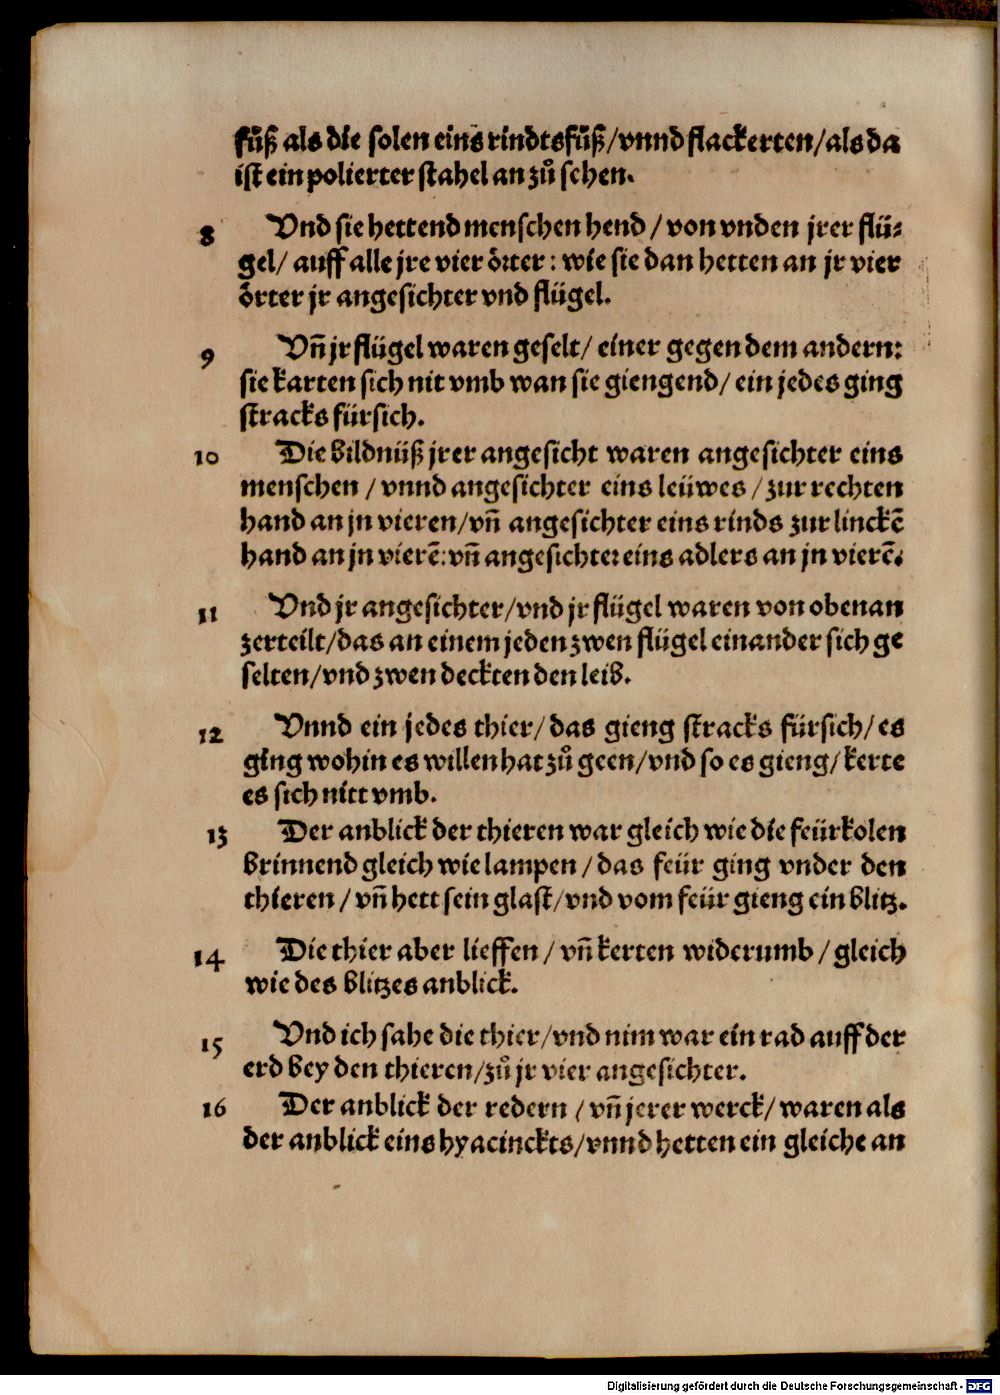 fuͤß als die solen eins rindtsfuͤß/vnnd flackerten/als da
ist ein polierter stahel an zů sehen.
8 Vnd sie hettend menschen hend / von vnden jrer flü⸗
gel/ auff alle jre vier oͤrter : wie sie dan hetten an jr vier
oͤrter jr angesichter vnd flügel.
9 Vn̄ jr flügel waren geselt/ einer gegen dem andern:
sie karten sich nit vmb wan sie giengend/ ein jedes ging
stracks fürsich.
10 Die bildnüß jrer angesicht waren angesichter eins
menschen / vnnd angesichter eins leüwes / zur rechten
hand an jn vieren/vn̄ angesichter eins rinds zur linckē
hand an jn vierē: vn̄ angesichter eins adlers an jn vierē.
11 Vnd jr angesichter/vnd jr flügel waren von obenan
zerteilt/das an einem jeden zwen flügel einander sich ge
selten/vnd zwen deckten den leib.
12 Vnnd ein jedes thier/ das gieng stracks fürsich/ es
ging wohin es willen hat zů geen/vnd so es gieng/ kerte
es sich nitt vmb.
13 Der anblick der thieren war gleich wie die feürkolen
brinnend gleich wie lampen / das feür ging vnder den
thieren / vn̄ hett sein glast/vnd vom feür gieng ein blitz.
14 Die thier aber lieffen / vn̄ kerten widerumb / gleich
wie des blitzes anblick.
15 Vnd ich sahe die thier/vnd nim war ein rad auff der
erd bey den thieren/zů jr vier angesichter.
16 Der anblick der redern / vn̄ jerer werck/ waren als
der anblick eins hyacinckts/vnnd hetten ein gleiche an
Digitalisierung gefördert durch die Deutsche Forschungsgemeinschaft - DFG